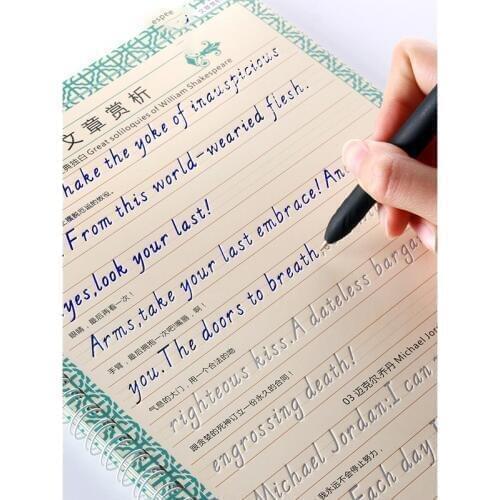 espee
文章赏析
经典独白 Great soliloquies of William Shakespeare
hake the yoke of inauspicious
From this world-wearied flesh.
yes,look your last!
眼睛，最后再看一次！
Arms,take your last embrace!An
手臂，最后拥抱一次吧!嘴唇，啊！
you.The doors to breath,
气息的大门，用一个合法的吻
righteous kiss.A dateless barga
跟贪婪的死神订立一份永久的合同！
engrossing death!
03 迈克尔乔丹 Michael Jor
Michael Jordan:I can
我永远不会停止努力，
Each day I